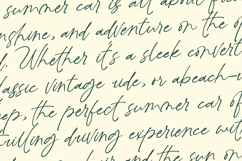 summer car is all about f
nshine, and adventure on the o
. Whether it's a sleek convert
lassic vintage ride, or a beach-
eep, the perfect summer car of
rilling driving experience wit
hair and the sun on